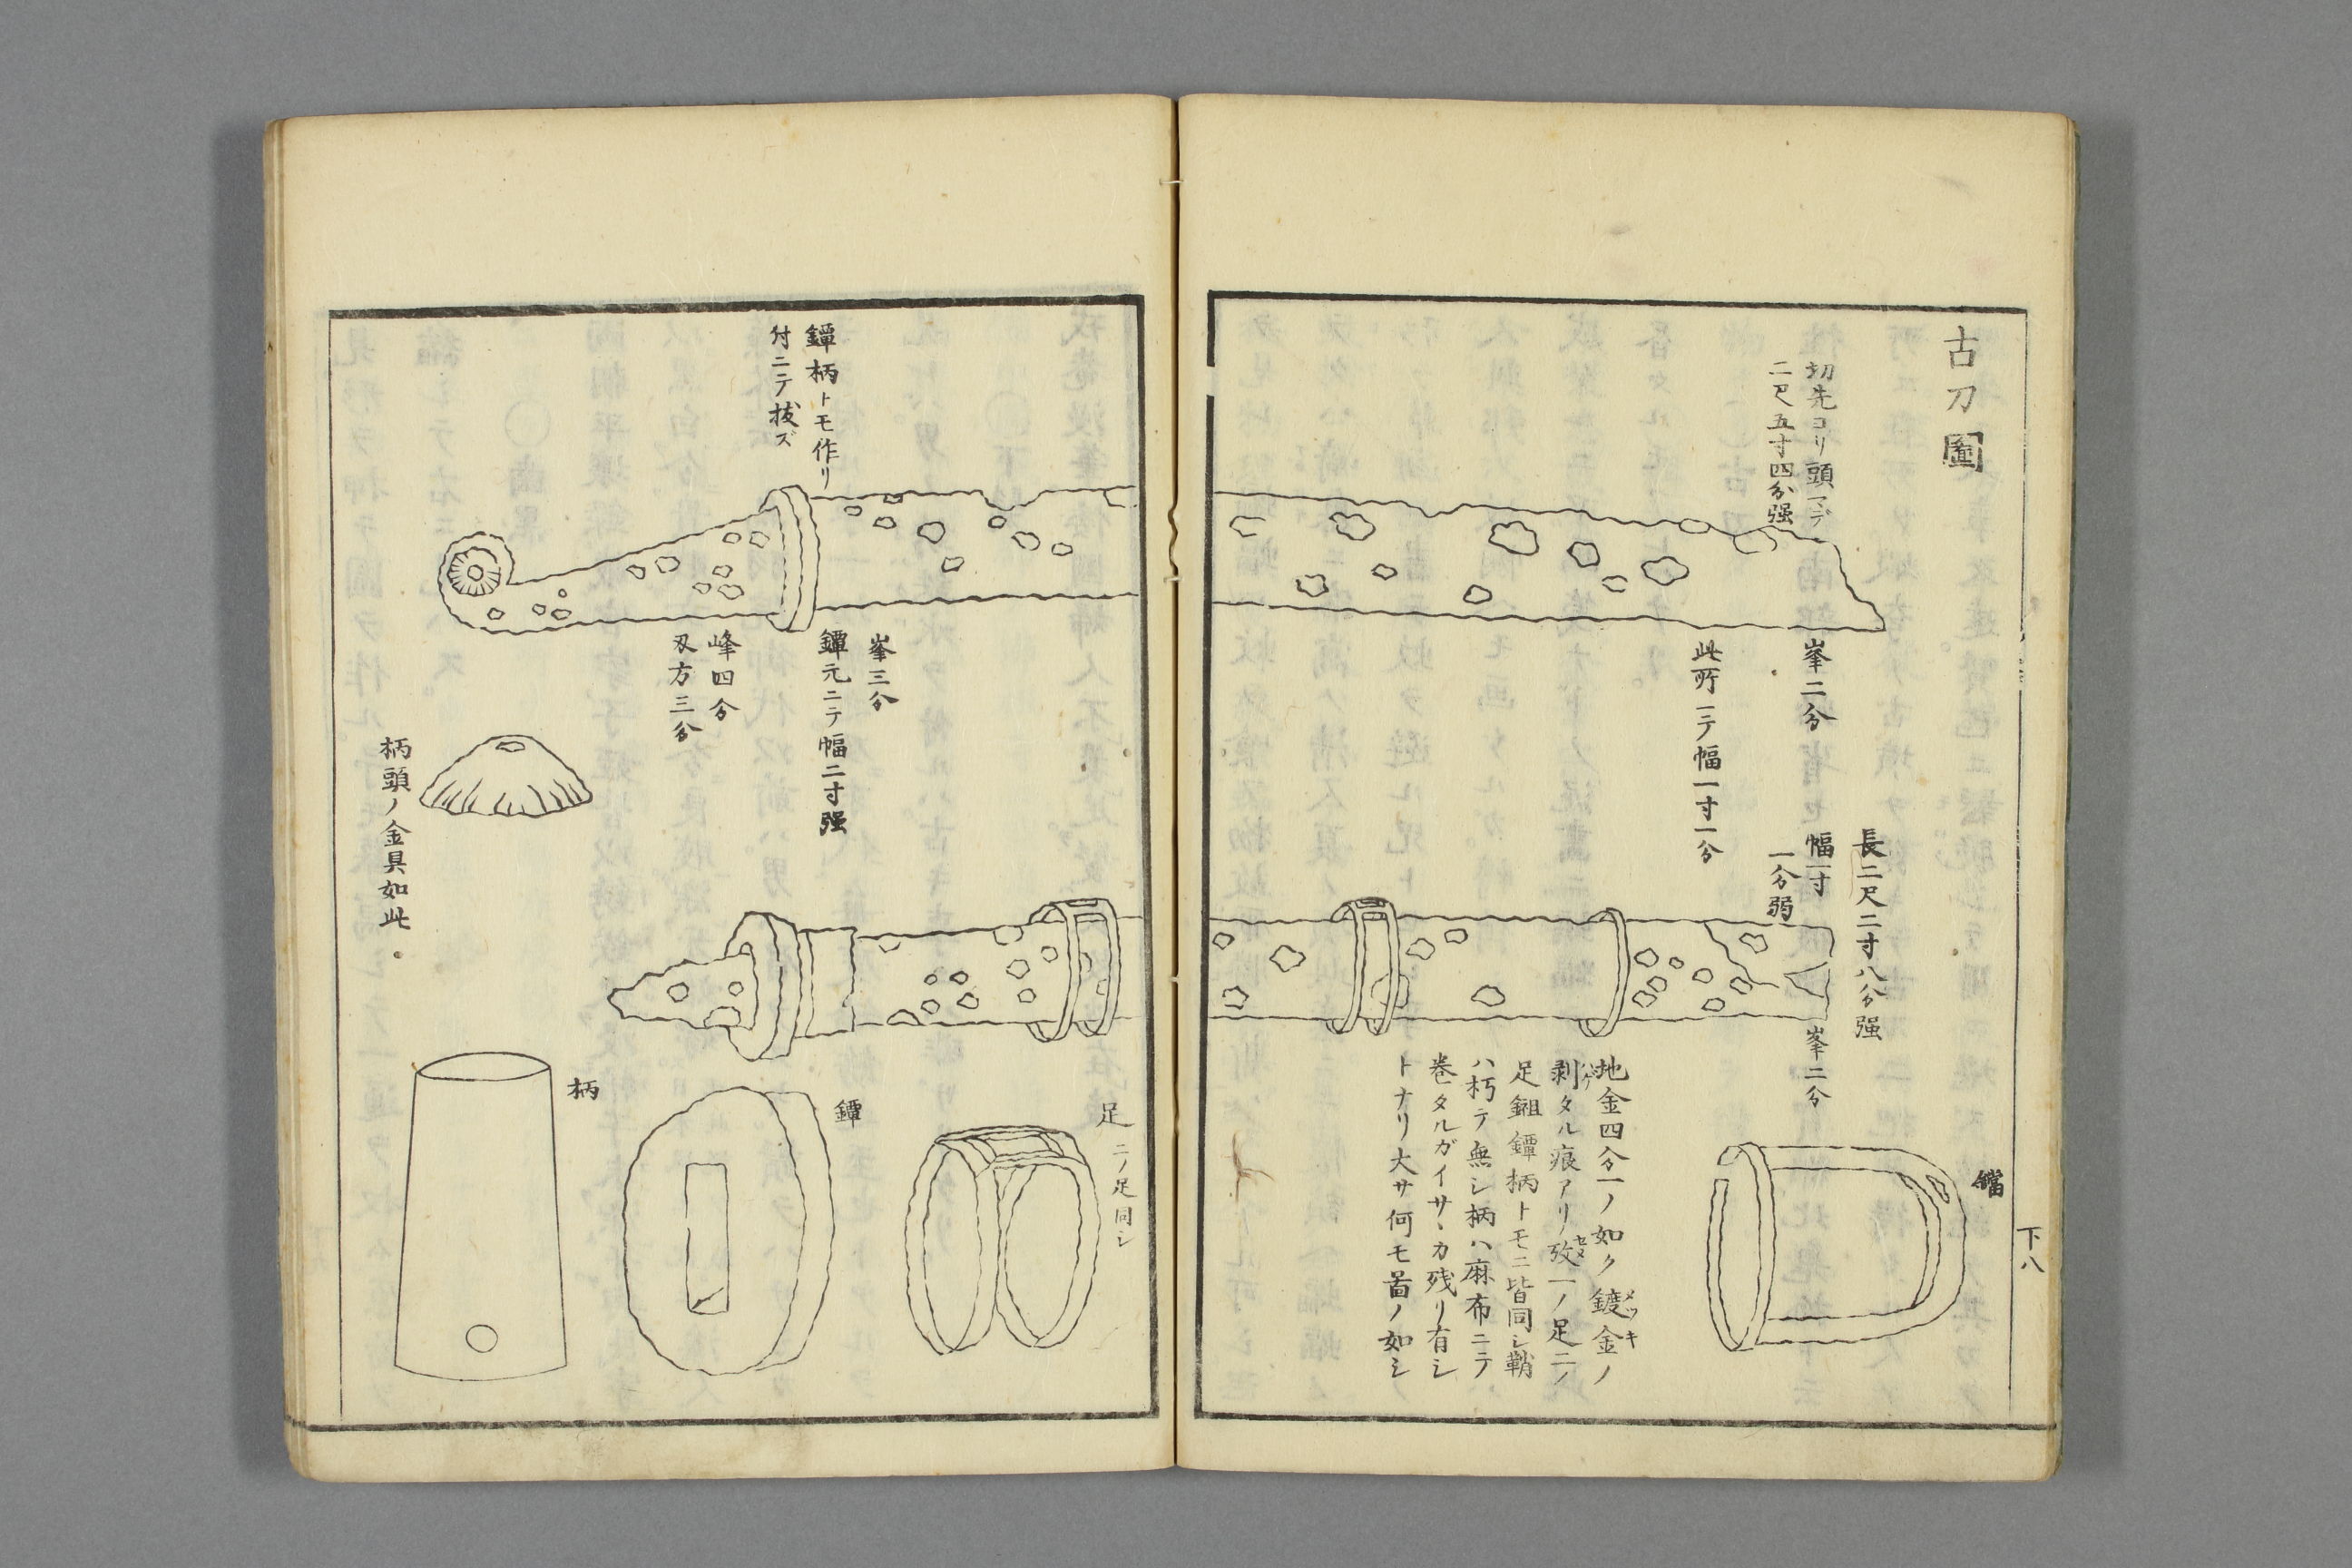 古刀圖
切先ヨリ頭マデ
二尺五寸四分强
峯二分
此所ニテ幅一寸一分
長二尺二寸八分强
幅一寸
一分弱
峯二分
鐺
地金四分一ノ如ク鍍金ノ
メッキ
剥タル痕アリ攷一ノ足二ノ
ハゲ
足鎺鐔柄トモニ皆同シ鞘
ハ朽テ無シ柄ハ麻布ニテ
巻タルガイサヽカ残リ有シ
トナリ大サ何モ啚ノ如シ
下八
鐔柄トモ作リ
付ニテ拔ズ
峯三分
鐔元ニテ幅二寸强
峰四分
刄方三分
柄頭ノ金具如此
足
二ノ足同シ
鐔
柄